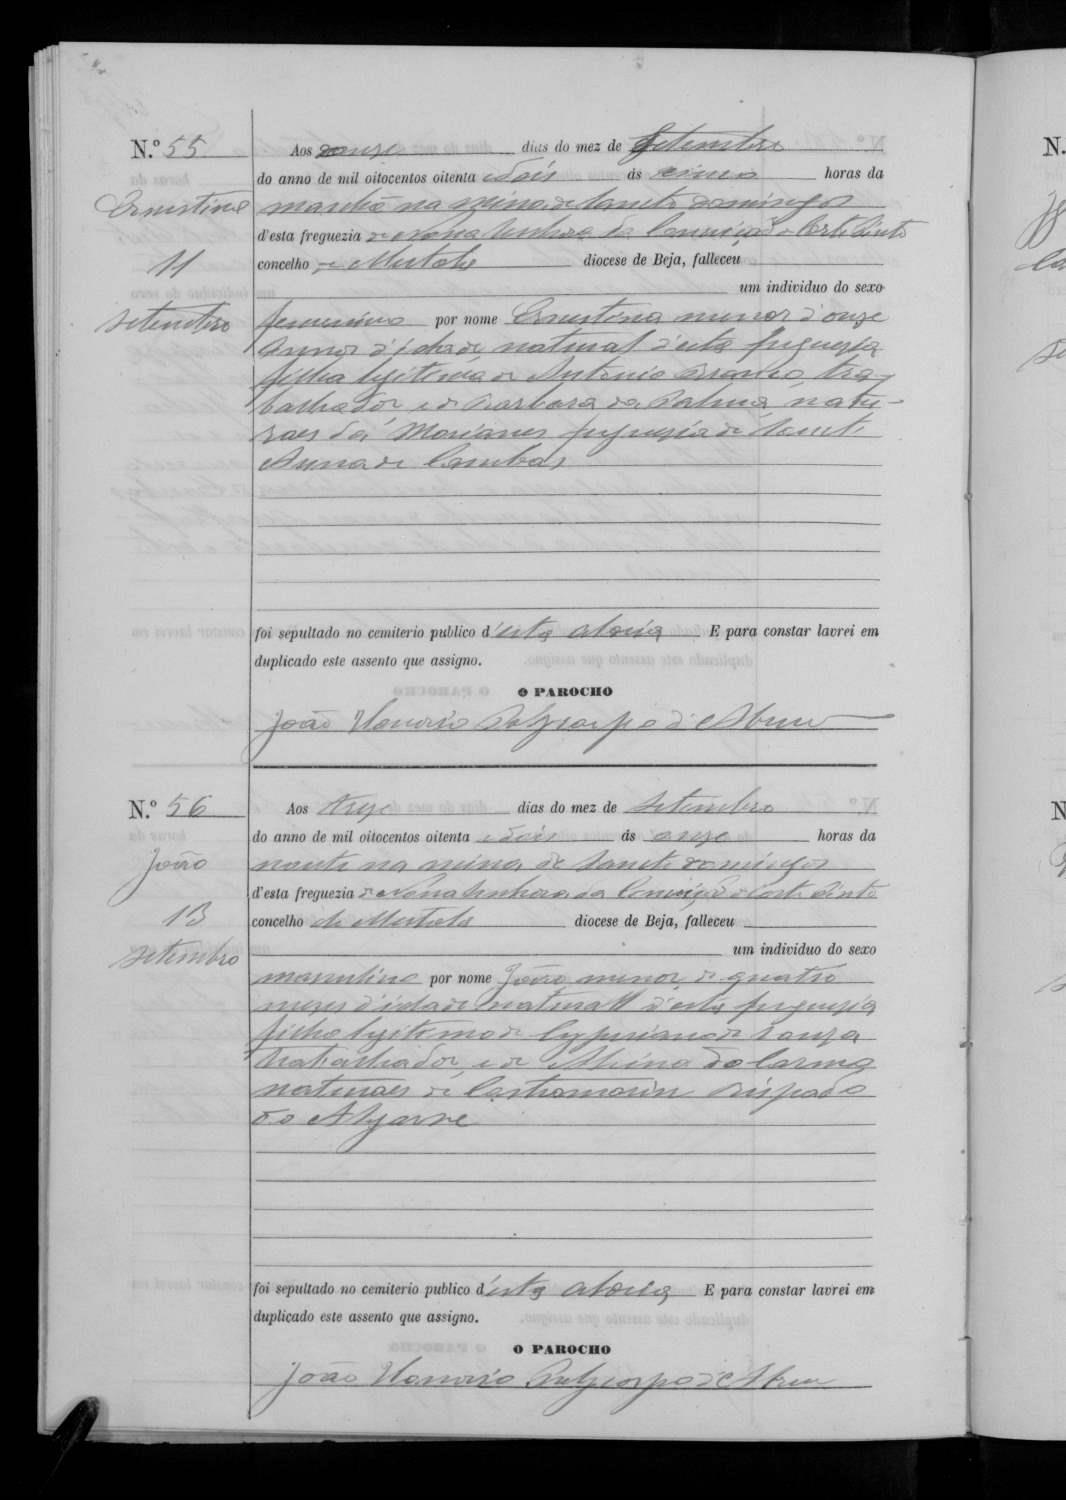 N.º 55
Aos onze dias do mez de Setembro
do anno de mil oitocentos oitenta e dois ás cinco horas da
Ernestina
manhã na mina de Santo Domingos
d'esta freguezia de Nossa Senhora da Conceição de Corte Pinto
11
concelho de Mertola diocese de Beja, falleceu
um individuo do sexo
Setembro
femenino por nome Ernestina menor d'onze
annos d'idade natural d'esta freguezia
filha legitima de Antonio tra-
balhador e de Barbara da Palma natu-
raes dos Mosianes freguezia de Sant'
Anna de Cambas
foi sepultado no cemiterio publico d'esta aldeia E para constar lavrei em
duplicado este assento que assigno.
O PAROCHO
João Honorio Polycarpo d'Abreu
N.º 56
Aos treze dias do mez de Setembro
do anno de mil oitocentos oitenta e dois ás onze horas da
João
noute na mina de Santo Domingos
d'esta freguezia de Nossa Senhora da Conceição de Corte Pinto
13
concelho de Mertola diocese de Beja, falleceu
Setembro
um individuo do sexo
masculino por nome João menor de quatro
mezes d'idade natural d'esta freguezia
filho legitimo de Cypriano de Souza
trabalhador e de do Carmo
naturaes de Castromarim Bispado
do Algarve
foi sepultado no cemiterio publico d'esta aldeia E para constar lavrei em
duplicado este assento que assigno.
O PAROCHO
João Honorio Polycarpo d'Abreu